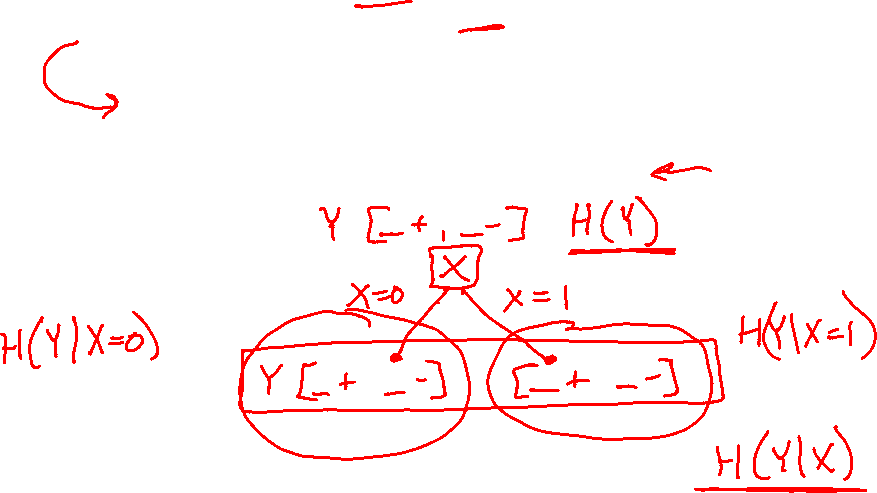 Y [_+, _-] H(Y)
X
X=0 X=1
H(Y|X=0) Y [_+ _-] [_+ _-] H(Y|X=1)
H(Y|X)